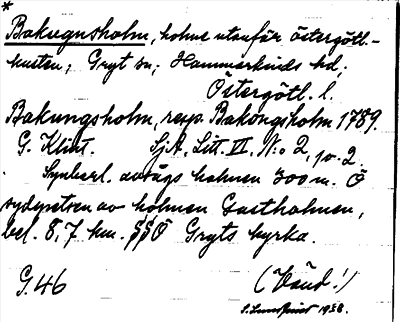 *
Bakugnsholm, holme utanför östergötl.-
kusten; Gryt sn; Hammarkinds hd;
Östergötl. l.
Bakungsholm, resp. Bakongsholm 1789.
G. Klint. Sj.A. Litt. VI. N:o 2, p. 2.
Synberl. avsågs holmen 300 m. Ö
sydspetsen av holmen Gastholmen,
bel. 8,7 km. SSÖ Gryts kyrka.
G.46 (Vänd!)
S. Lundqvist 1938.